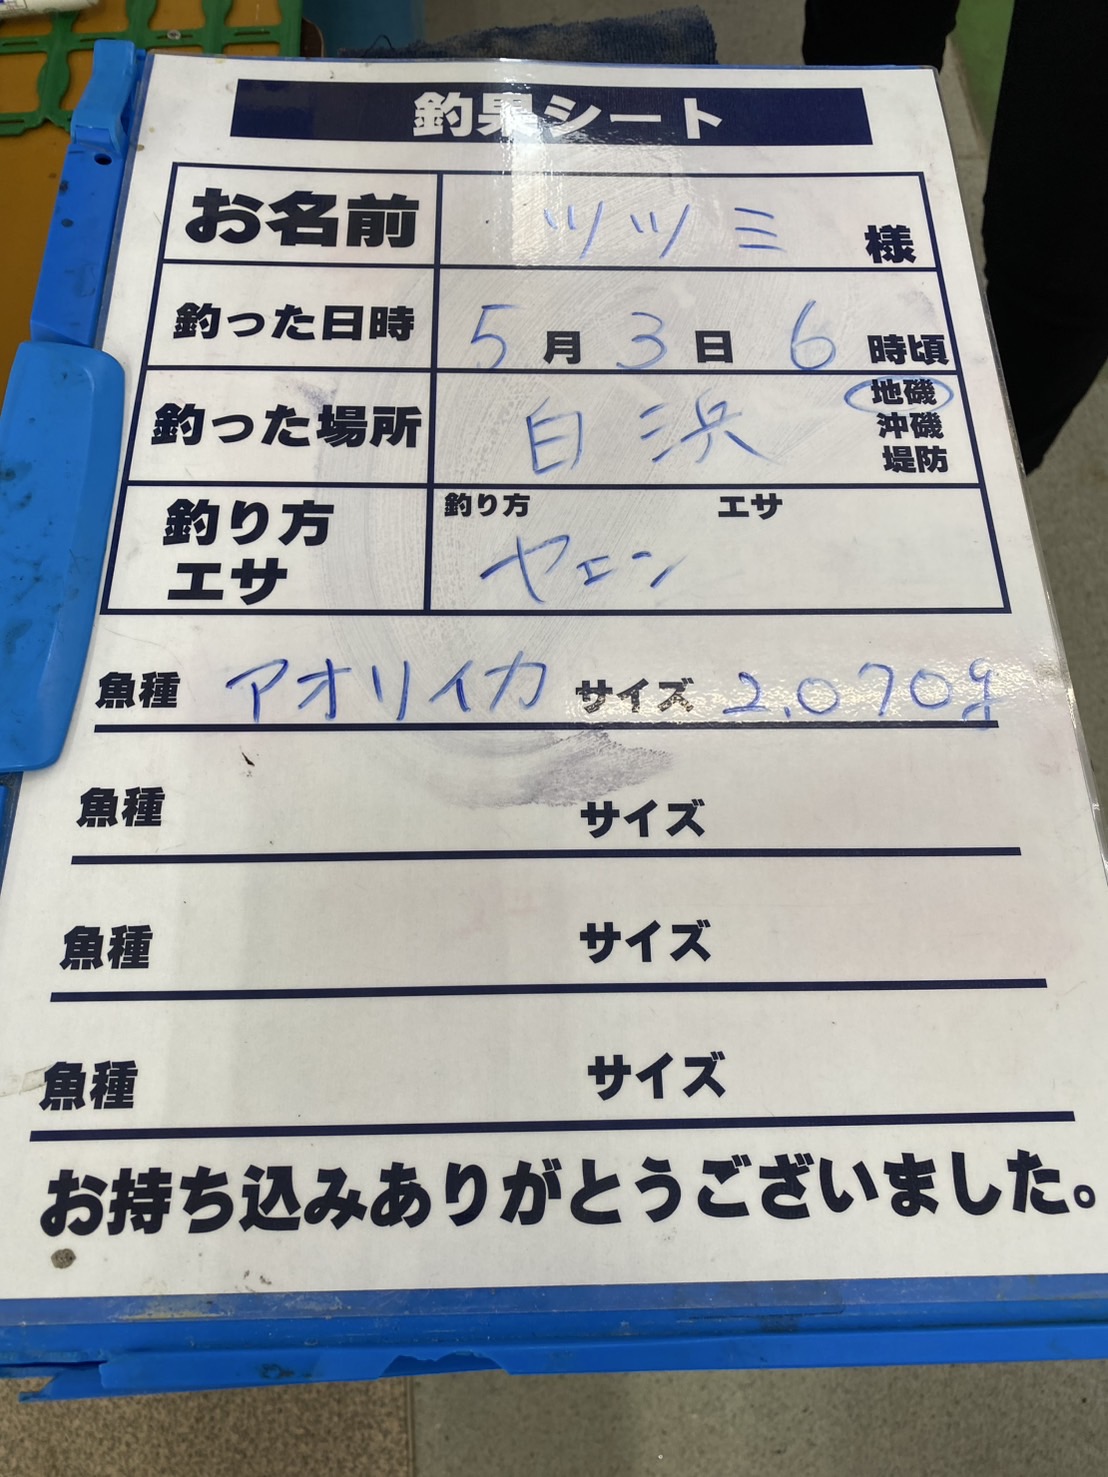 釣果シート
お名前 ツツミ 様
釣った日時 5月3日6時頃
釣った場所 白浜 地磯
沖磯
堤防
釣り方 エサ
釣り方
エサ
ヤエン
魚種 アオリイカ サイズ 2,070g
魚種 サイズ
魚種 サイズ
魚種 サイズ
お持ち込みありがとうございました。